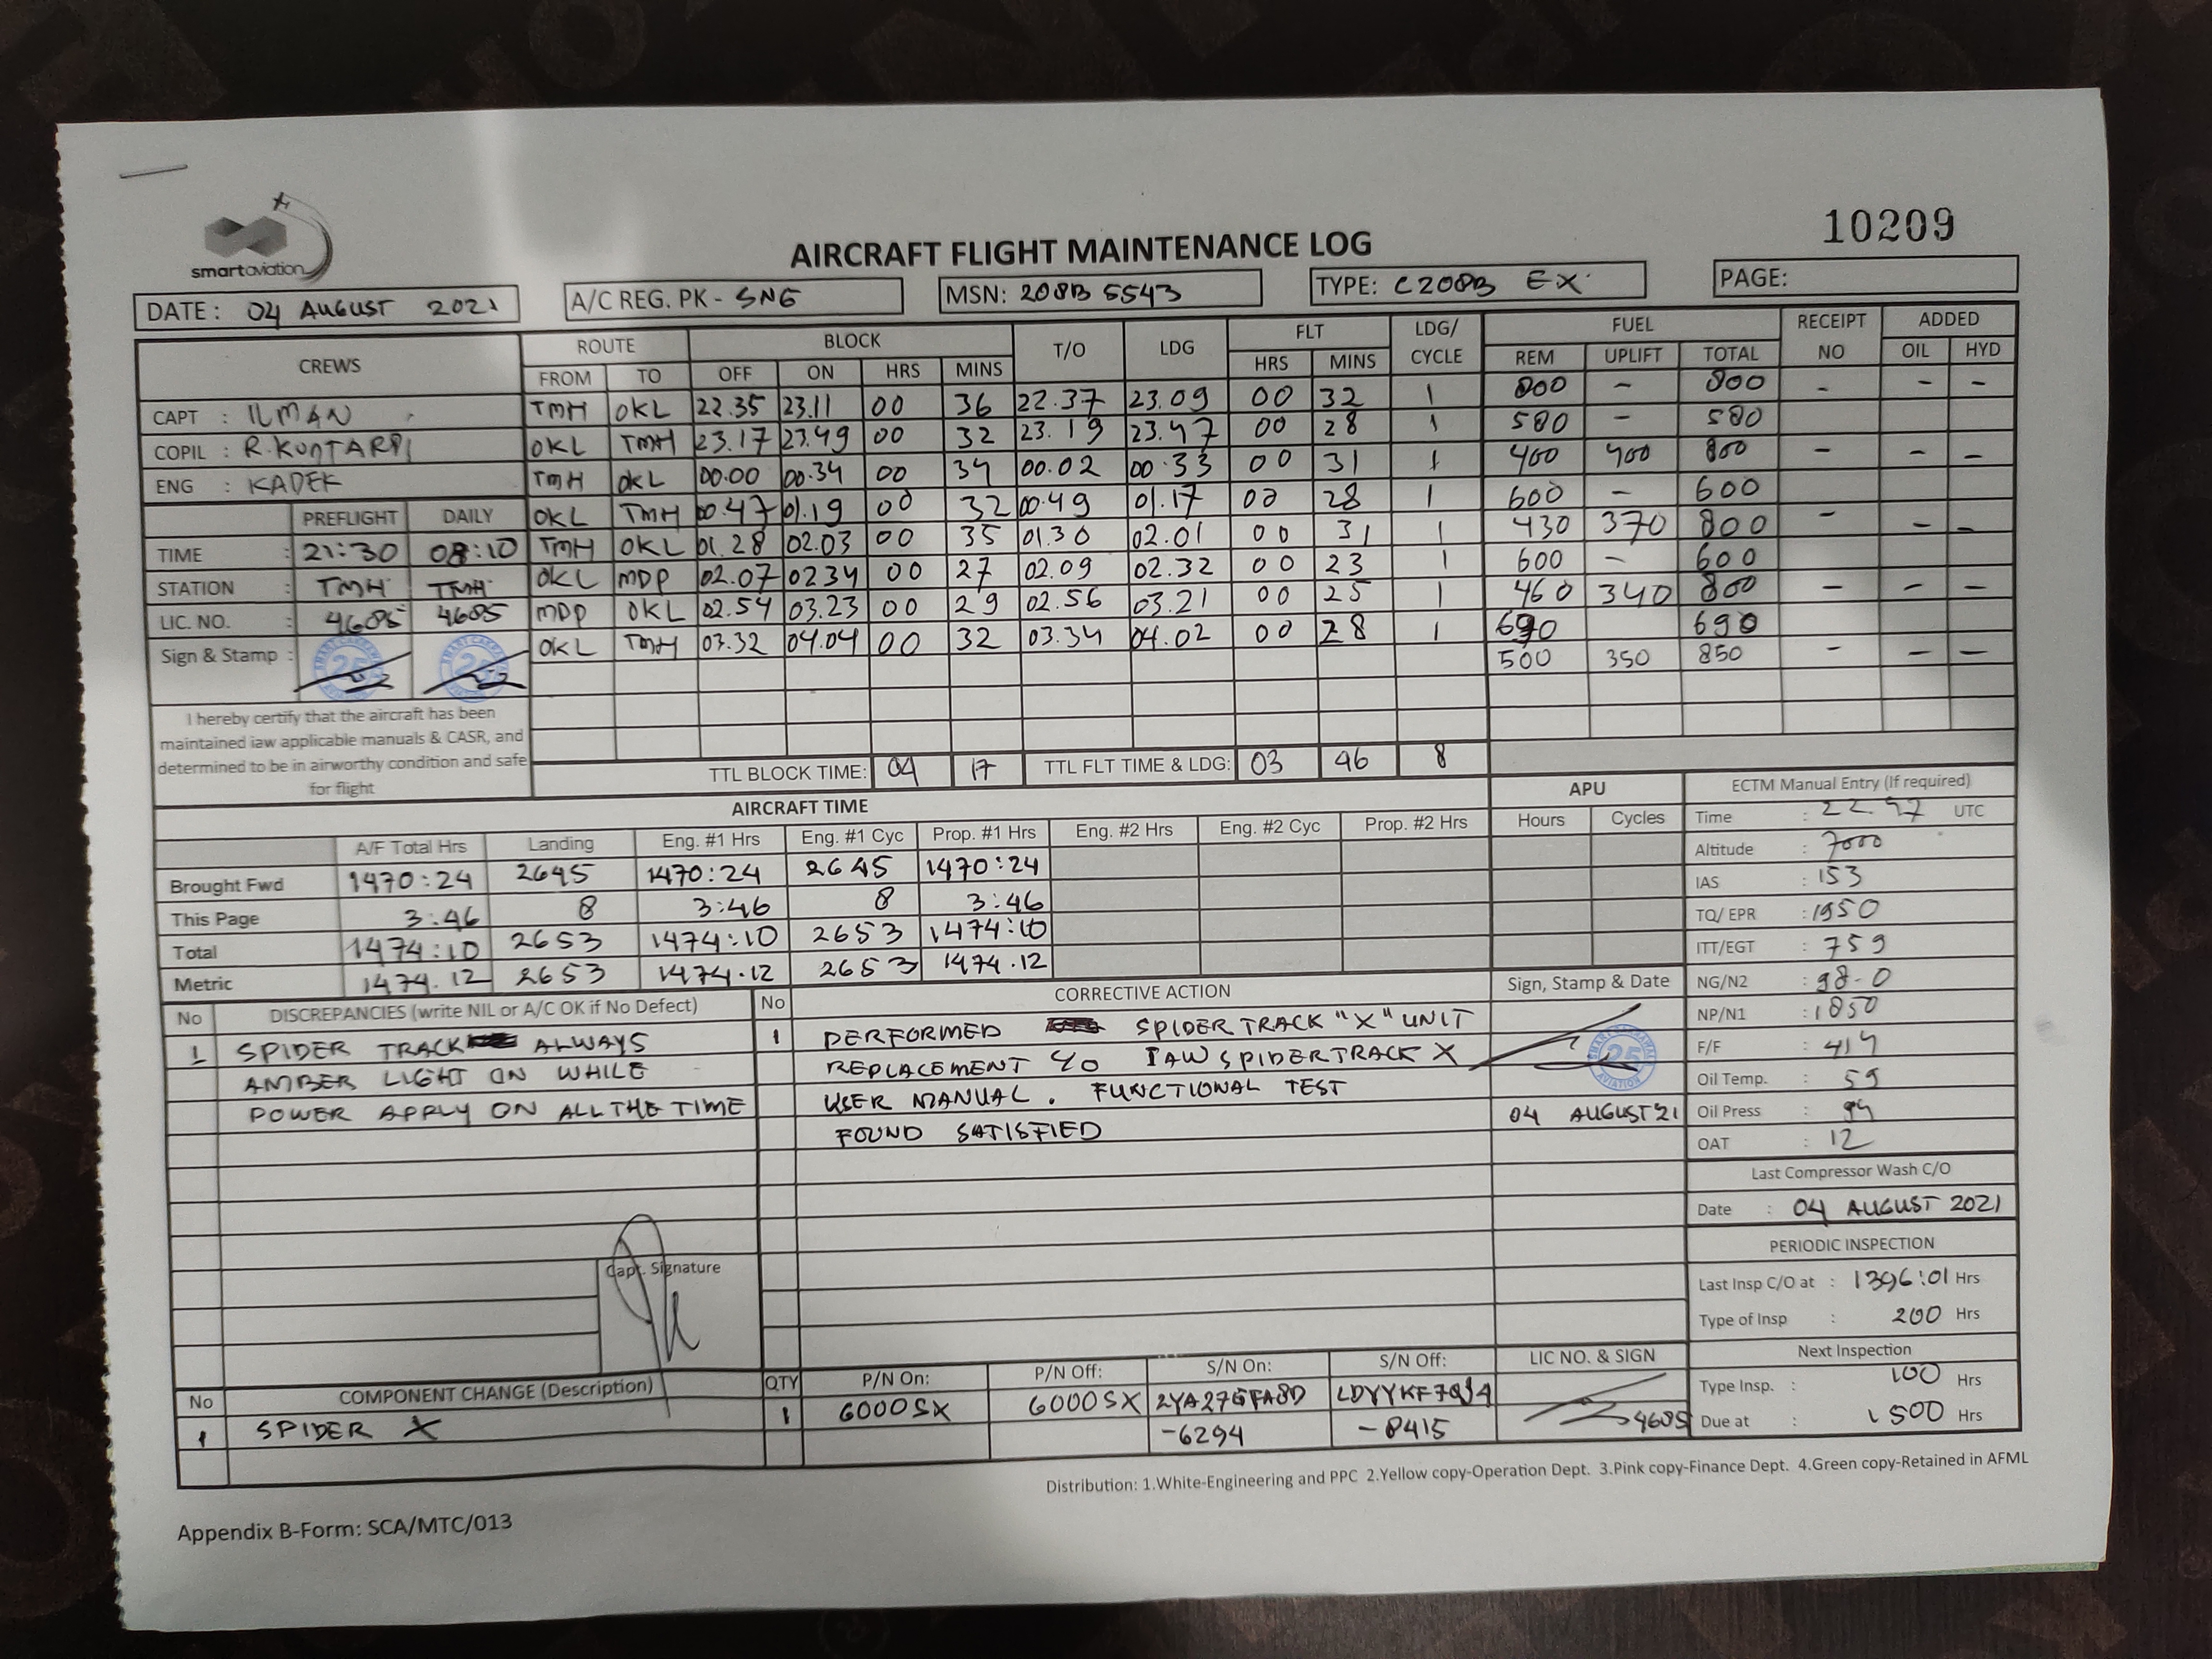 smartaviation
10209
AIRCRAFT FLIGHT MAINTENANCE LOG
DATE : 04 AUGUST 2021 A/C REG. PK - SNG MSN: 208B 5543 TYPE: C208B EX PAGE:
CREWS ROUTE BLOCK T/O LDG FLT LDG/ CYCLE FUEL RECEIPT NO ADDED
FROM TO OFF ON HRS MINS HRS MINS REM UPLIFT TOTAL OIL HYD
CAPT : ILMAN TMH OKL 22.35 23.11 00 36 22.37 23.09 00 32 1 800 - 800 - - -
COPIL : R.KUNTARDI OKL TMH 23.17 23.49 00 32 23.19 23.47 00 28 1 580 - 580
ENG : KADEK TMH OKL 00.00 00.34 00 34 00.02 00.33 00 31 1 400 400 800 - - -
PREFLIGHT DAILY OKL TMH 00.47 01.19 00 32 00.49 01.17 00 28 1 600 - 600
TIME : 21:30 08:10 TMH OKL 01.28 02.03 00 35 01.30 02.01 00 31 1 430 370 800 - - -
STATION : TMH TMH OKL MDP 02.07 0234 00 27 02.09 02.32 00 23 1 600 - 600
LIC. NO. : 4685 4685 MDP OKL 02.54 03.23 00 29 02.56 03.21 00 25 1 460 340 800 - - -
Sign & Stamp : OKL TMH 03.32 04.04 00 32 03.34 04.02 00 28 1 690 690
500 350 850 - - -
I hereby certify that the aircraft has been
maintained iaw applicable manuals & CASR, and
determined to be in airworthy condition and safe
for flight
TTL BLOCK TIME: 04 17 TTL FLT TIME & LDG: 03 46 8
AIRCRAFT TIME APU ECTM Manual Entry (If required)
A/F Total Hrs Landing Eng. #1 Hrs Eng. #1 Cyc Prop. #1 Hrs Eng. #2 Hrs Eng. #2 Cyc Prop. #2 Hrs Hours Cycles
Brought Fwd 1470:24 2645 1470:24 2645 1470:24
This Page 3:46 8 3:46 8 3:46
Total 1474:10 2653 1474:10 2653 1474:10
Metric 1474.12 2653 1474.12 2653 1474.12
Time : 22.47 UTC
Altitude : 7000
IAS : 153
TQ/ EPR : 1950
ITT/EGT : 759
NG/N2 : 98.0
NP/N1 : 1850
F/F : 414
Oil Temp. : 59
Oil Press : 94
OAT : 12
Last Compressor Wash C/O
Date : 04 AUGUST 2021
PERIODIC INSPECTION
Last Insp C/O at : 1396:01 Hrs
Type of Insp : 200 Hrs
Next Inspection
Type Insp. : 100 Hrs
Due at : 1500 Hrs
No DISCREPANCIES (write NIL or A/C OK if No Defect) No CORRECTIVE ACTION Sign, Stamp & Date
1 SPIDER TRACK ALWAYS
AMBER LIGHT ON WHILE
POWER APPLY ON ALL THE TIME
1 PERFORMED SPIDERTRACK "X" UNIT
REPLACEMENT IAW SPIDERTRACK X
USER MANUAL. FUNCTIONAL TEST
FOUND SATISFIED
25
AVIATION
04 AUGUST'21
Capt. Signature
No COMPONENT CHANGE (Description) QTY P/N On: P/N Off: S/N On: S/N Off: LIC NO. & SIGN
1 SPIDER X 1 6000SX 6000SX 4685
-6294 -8415
Distribution: 1.White-Engineering and PPC 2.Yellow copy-Operation Dept. 3.Pink copy-Finance Dept. 4.Green copy-Retained in AFML
Appendix B-Form: SCA/MTC/013